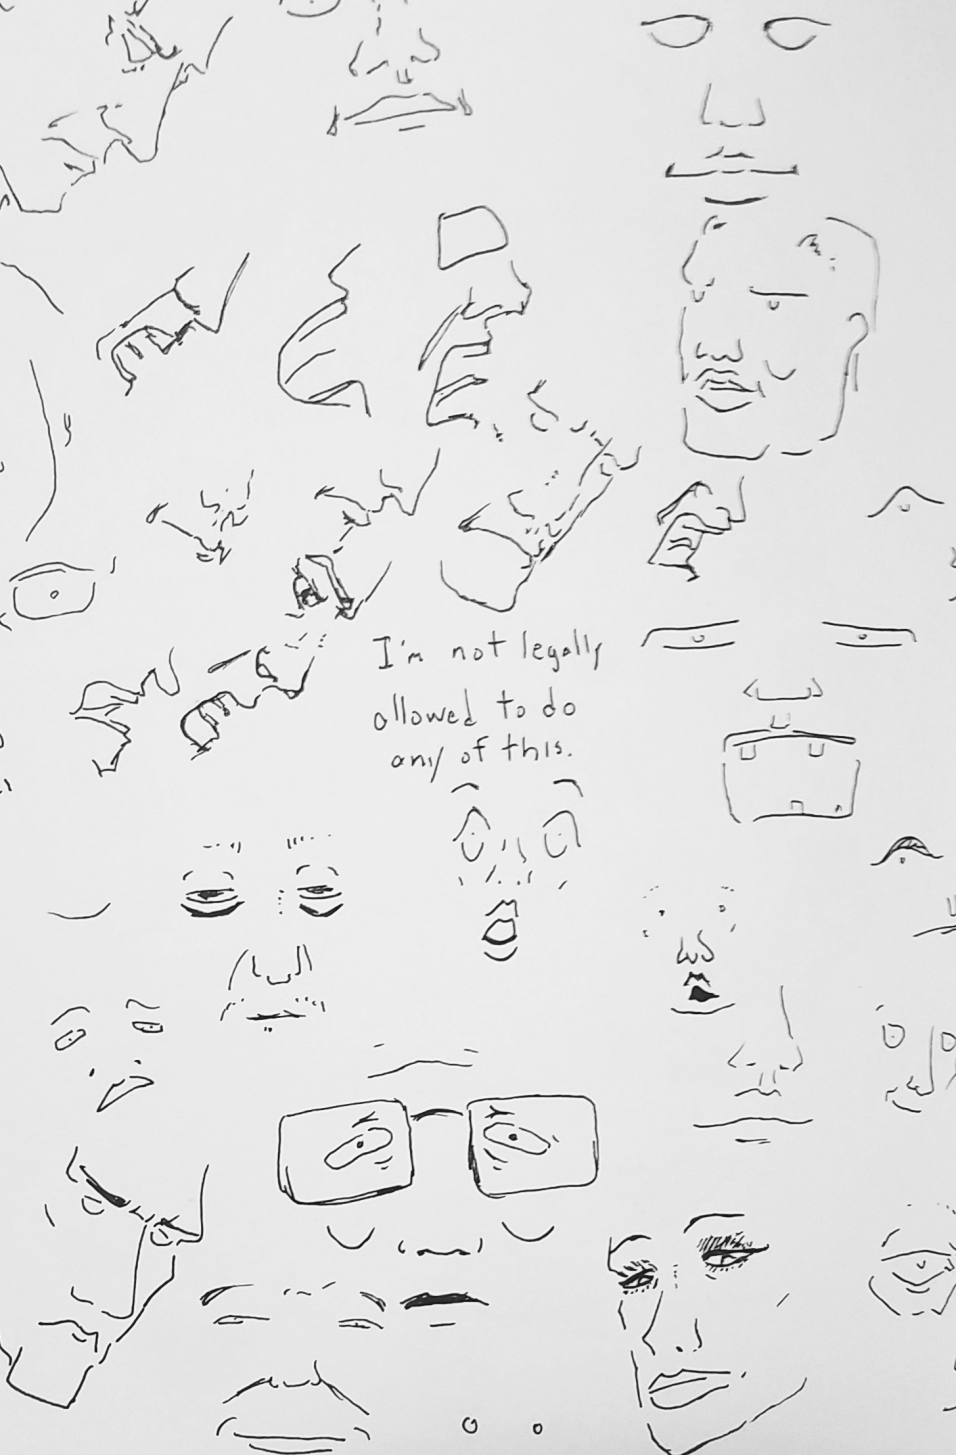 I'm not legally
allowed to do
any of this.